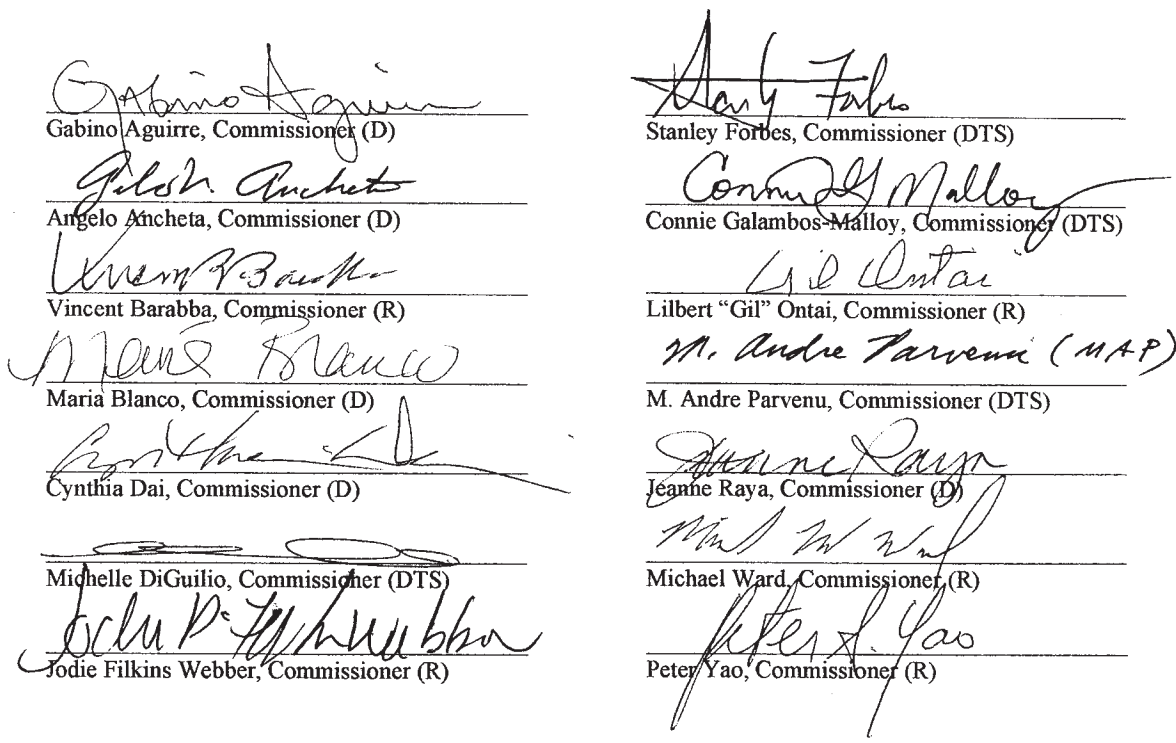 Gabino Aguirre
Gabino Aguirre, Commissioner (D)
Ancheta
Angelo Ancheta, Commissioner (D)
Vincent Barabba, Commissioner (R)
Maria Blanco
Maria Blanco, Commissioner (D)
Cynthia Dai, Commissioner (D)
Michelle DiGuilio, Commissioner (DTS)
Jodie Filkins Webber, Commissioner (R)
Forbes
Stanley Forbes, Commissioner (DTS)
Connie G Malloy
Connie Galambos-Malloy, Commissioner (DTS)
Gil Ontai
Lilbert “Gil” Ontai, Commissioner (R)
M. Andre Parvenu (MAP)
M. Andre Parvenu, Commissioner (DTS)
Jeanne Raya
Jeanne Raya, Commissioner (D)
Michael Ward, Commissioner (R)
Peter S. Yao
Peter Yao, Commissioner (R)